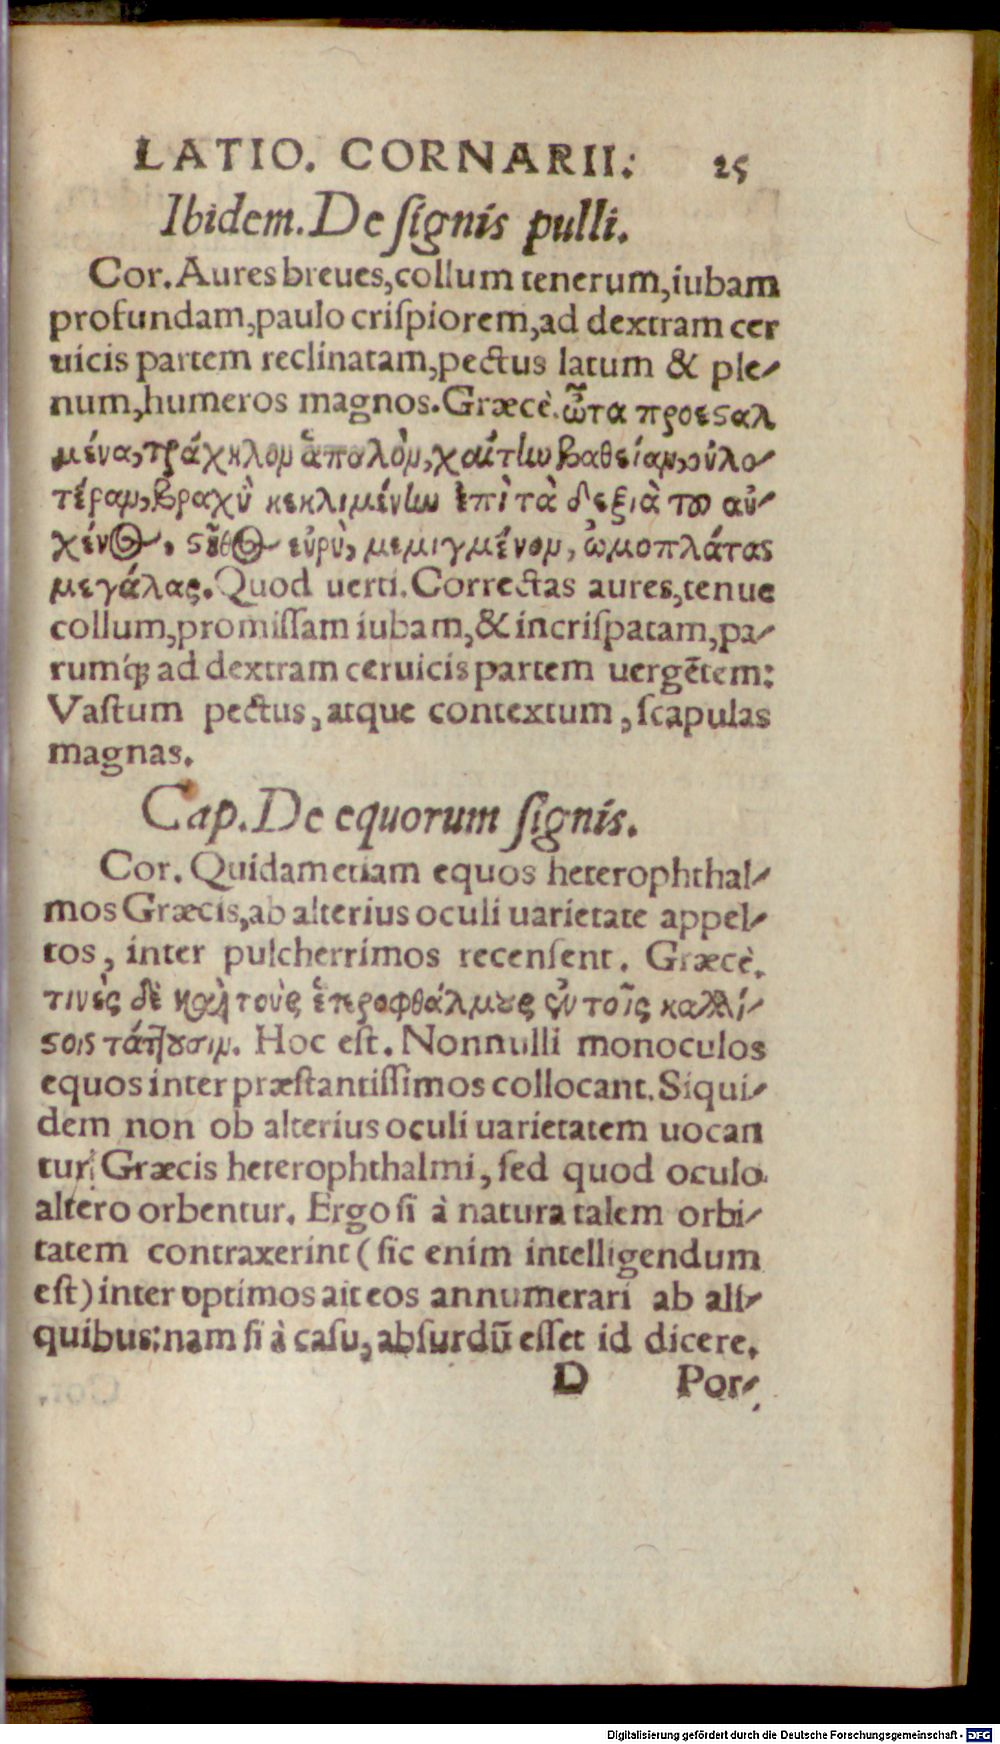 LATIO. CORNARII: 25
Ibidem. De signis pulli.
Cor. Aures breues, collum tenerum, iubam
profundam, paulo crispiorem, ad dextram cer
uicis partem reclinatam, pectus latum & ple-
num, humeros magnos. Græcè. ὦτα προεσαλ
μένα, τράχηλον ἁπαλὸν, χαίτην βαθείαν, οὐλο-
τέραν, βραχὺ κεκλιμένην ἐπὶ τὰ δεξιὰ τοῦ αὐ-
χένος, στῆθος εὐρὺ, μεμιγμένον, ὠμοπλάτας
μεγάλας. Quod uerti. Correctas aures, tenue
collum, promissam iubam, & incrispatam, pa-
rumq́; ad dextram ceruicis partem uergētem:
Vastum pectus, atque contextum, scapulas
magnas.
Cap. De equorum signis.
Cor. Quidam etiam equos heterophthal-
mos Græcis, ab alterius oculi uarietate appel-
tos, inter pulcherrimos recensent. Græcè.
τινὲς δὲ καὶ τοὺς ἑτεροφθάλμους ἐν τοῖς καλλί-
στοις τάττουσιν. Hoc est. Nonnulli monoculos
equos inter præstantissimos collocant. Siqui-
dem non ob alterius oculi uarietatem uocan
tur Græcis heterophthalmi, sed quod oculo
altero orbentur. Ergo si à natura talem orbi-
tatem contraxerint (sic enim intelligendum
est) inter optimos ait eos annumerari ab ali-
quibus: nam si à casu, absurdū esset id dicere.
D Por-
Digitalisierung gefördert durch die Deutsche Forschungsgemeinschaft - DFG